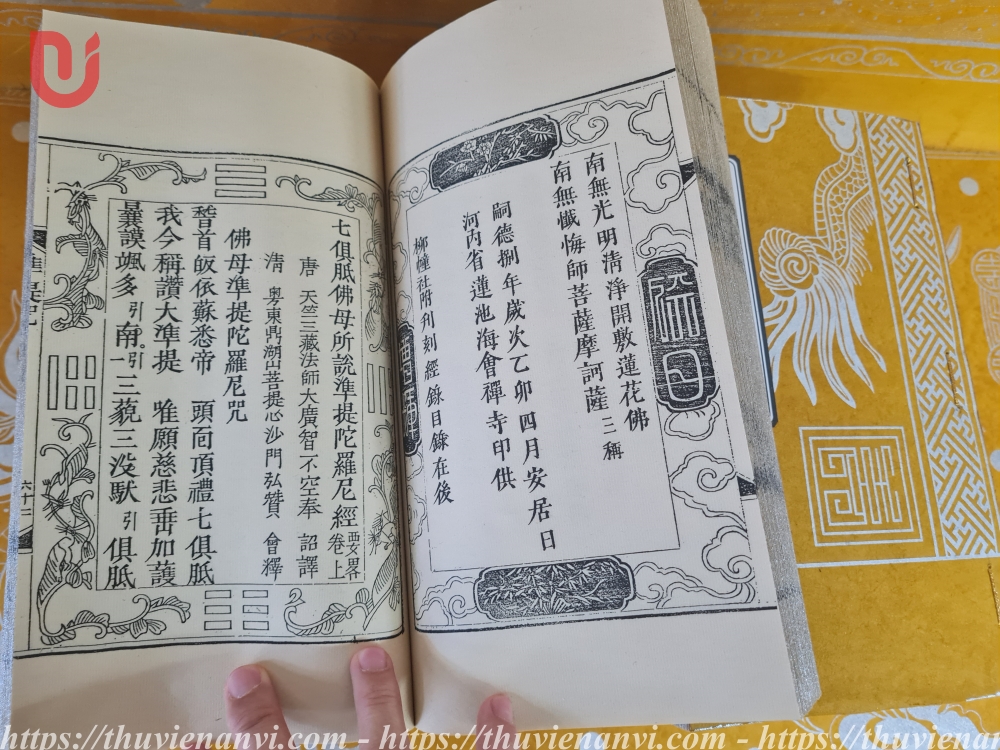 南無光明清淨開敷蓮花佛
南無懺悔師菩薩摩訶薩 三稱
嗣德捌年歲次乙卯四月安居日
河內省蓮池海會禪寺印供
柳幢社附刋刻經錄目錄在後
七俱胝佛母所說準提陀羅尼經 要畧卷上
唐 天竺三藏法師大廣智不空奉 詔譯
清 粵東鼎湖山菩提心沙門弘贊 會釋
佛母準提陀羅尼咒
稽首皈依蘇悉帝 頭面頂禮七俱胝
我今稱讚大準提 唯願慈悲垂加護
曩謨颯多引南引一三藐三没馱引俱胝
六十二
https://thuvienanvi.com - https://thuvienanvi.com - https://thuvienanvi.com